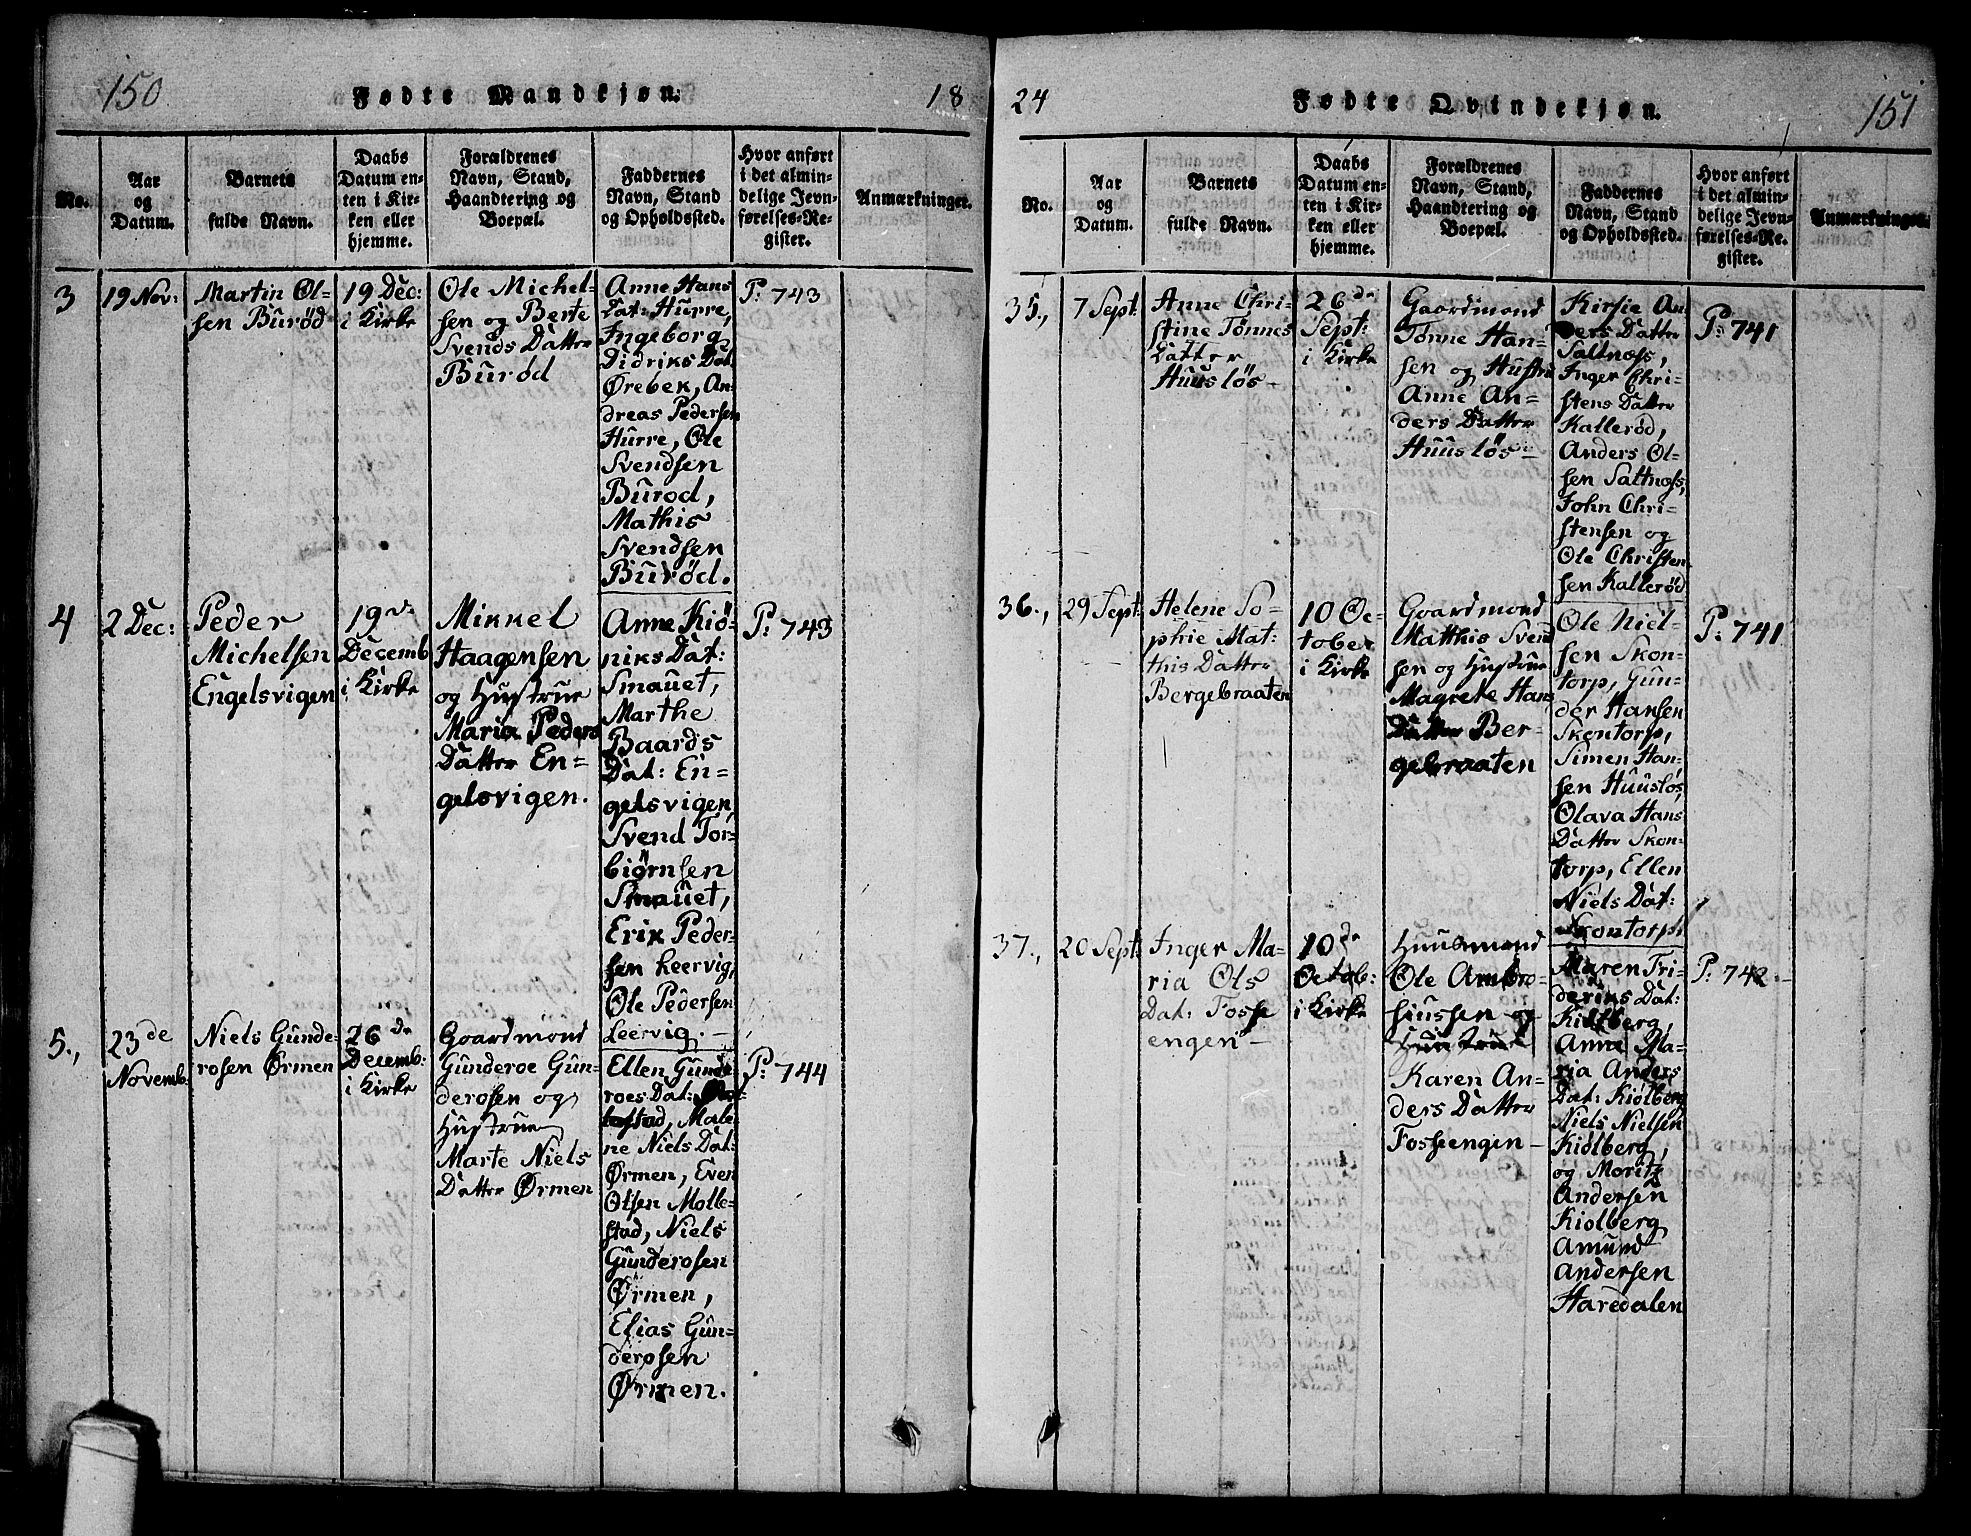 150
Fødte Mandkjøn.
18
No.
Aar
og
Datum.
Barnets
fulde Navn.
Daabs
Datum en-
ten i Kir-
ken eller
hjemme.
Forældrenes
Navn, Stand,
Haandtering og
Boepæl.
Faddernes
Navn, Stand
og Opholdssted.
Hvor anført
i det almin-
delige Jevn-
førelses-Re-
gister.
Anmærkninger.
3
19 Nov:
Martin Ol-
sen Burød
19 Dec:
i Kirke
Ole Michel-
sen og Berte
Svends Datter
Burød
Anne Hans
Dat: Hurre,
Ingeborg
Didriks Dat
Ørebek, An-
dreas Pedersen
Hurre, Ole
Svendsen
Burod,
Mathis
Svendsen
Burød.
P: 743
4
2 Dec:
Peder
Michelsen
Engelsvigen
19de
Decemb
i Kirke
Mikkel
Haagensen
og Hustrue
Maria Peders
Datter En=
gelsvigen.
Anne Kiø-
niks Dat:
Smauet,
Marthe
Baards
Dat: En=
gelsvigen,
Svend Tor=
biørnsen
Smauet,
Erik Peder-
sen Leervig,
Ole Pedersen
Leervig.
P: 743
5.,
23de
Novemb:
Niels Gunde-
rosen Ørmen
26de
Decemb:
i Kirke
Goardmond
Gunderoe Gun-
derosen og
Hustrue
Marte Niels
Datter Ørmen
Ellen Gunde
roes Dat:
Male-
ne Niels Dat:
Ørmen, Even
Olsen Molle-
stad, Niels
Gunderosen
Ørmen,
Elias Gun-
derosen
Ørmen.
P: 744
24
Fødte Qvindekjøn.
151
No.
Aar
og
Datum.
Barnets
fulde Navn.
Daabs
Datum en-
ten i Kir-
ken eller
hjemme.
Forældrenes
Navn, Stand,
Haandtering og
Boepæl.
Faddernes
Navn, Stand
og Opholdssted.
Hvor anført
i det almin-
delige Jevn-
førelses-Re-
gister.
Anmærkninger.
35.,
7 Sept:
Anne Chri-
stine Tønnes
Datter
Huusløs-
26de
Sept:
i Kirke
Goardmond
Tønne Han-
sen og Hustru
Anne An-
ders Datter
Huusløs-
Kirsie An
ders Datter
Saltnøss,
Inger Chri-
stens Datter
Kallerød,
Anders Ol-
sen Saltnøss,
John Chri-
stensen og
Ole Christen
sen Kallerød
P: 741
36.,
29 Sept:
Helene So-
phie Mat-
this Datter
Bergebraaten
10 Oc-
tober
i Kirke
Goardmond
Matthis Svend
sen og Hustrue
Magrete Hans
Datter Ber-
gebraaten
Ole Niel-
sen Skon-
torp, Gun-
der Hansen
Skontorp,
Simen Han-
sen Huusløs,
Olava Hans
Datter Skon-
torp, Ellen
Niels Dat:
Skontorp
P: 741
37.,
20 Sept:
Inger Ma-
ria Ols
Dat: Fosse
engen-
10de
Octob:
i Kirke
Huusmond
Ole Ambro-
siussen og
Hustrue
Karen An-
ders Datter
Fosseengen-
Maren Fri-
deriks Dat:
Kiølberg,
Anne Ma-
ria Anders
Dat: Kiølberg
Niels Nielsen
Kiølberg,
og Moritz
Andersen
Kiolberg
Amund
Andersen
Haredalen
P: 742